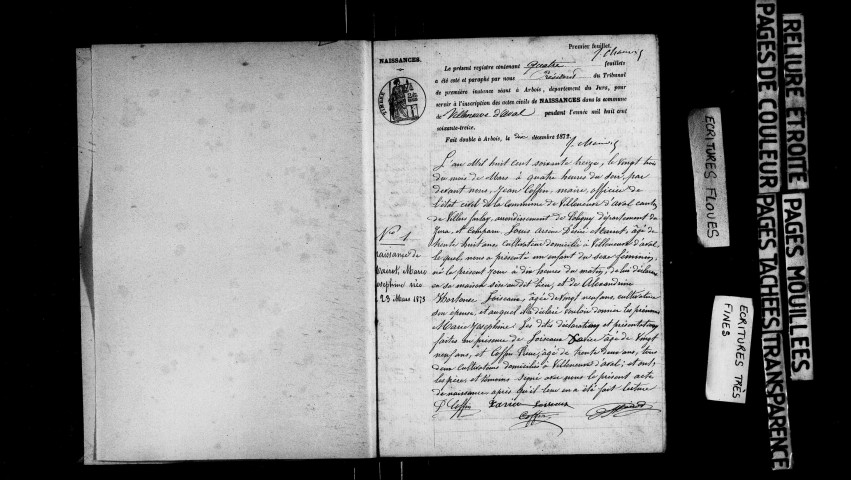 Premier feuillet.
NAISSANCES.
Le présent registre contenant quatre feuillets
a été coté et paraphé par nous Président du Tribunal
de première instance séant à Arbois, département du Jura, pour
servir à l'inscription des actes civils de NAISSANCES dans la commune
de Villeneuve d'aval pendant l'année mil huit cent
soixante-treize.
Fait double à Arbois, le dix décembre 1872.
L'an Mil huit cent soixante treize, le vingt trois
du mois de Mars à quatre heures du soir, par
devant nous, Jean Coffin, maire, officier de
l'état civil de la Commune de Villeneuve d'aval canton
de Villers farlay, arrondissement de Poligny département du
Jura, est comparu Louis Arsène Désiré, âgé de
trente huit ans, Cultivateur domicilié à Villeneuve d'aval,
lequel nous a présenté un enfant du sexe féminin,
né le présent jour à dix heures du matin, de lui déclarant
en sa maison sise audit lieu, et de Alexandrine
Hortense Loiseaux, âgée de vingt neuf ans, cultivatrice
son épouse, et auquel il a déclaré vouloir donner les prénoms
Marie Josephine. Les dites déclaration et présentation
faites en présence de Loiseaux Xavier âgé de vingt
neuf ans, et Coffin, âgé de trente deux ans, tous
deux cultivateurs domiciliés à Villeneuve d'aval; et ont,
les père et témoins signé avec nous le présent acte
de naissance après qu'il leur en a été fait lecture
Coffin Xavier Loiseaux
Coffin
No 1
naissance de
Marie
Josephine née
le 23 Mars 1873
RELIURE ETROITE
PAGES DE COULEUR
PAGES MOUILLEES
PAGES TACHEES
TRANSPARENCE
ECRITURES FLOUES
ECRITURES TRÈS
FINES